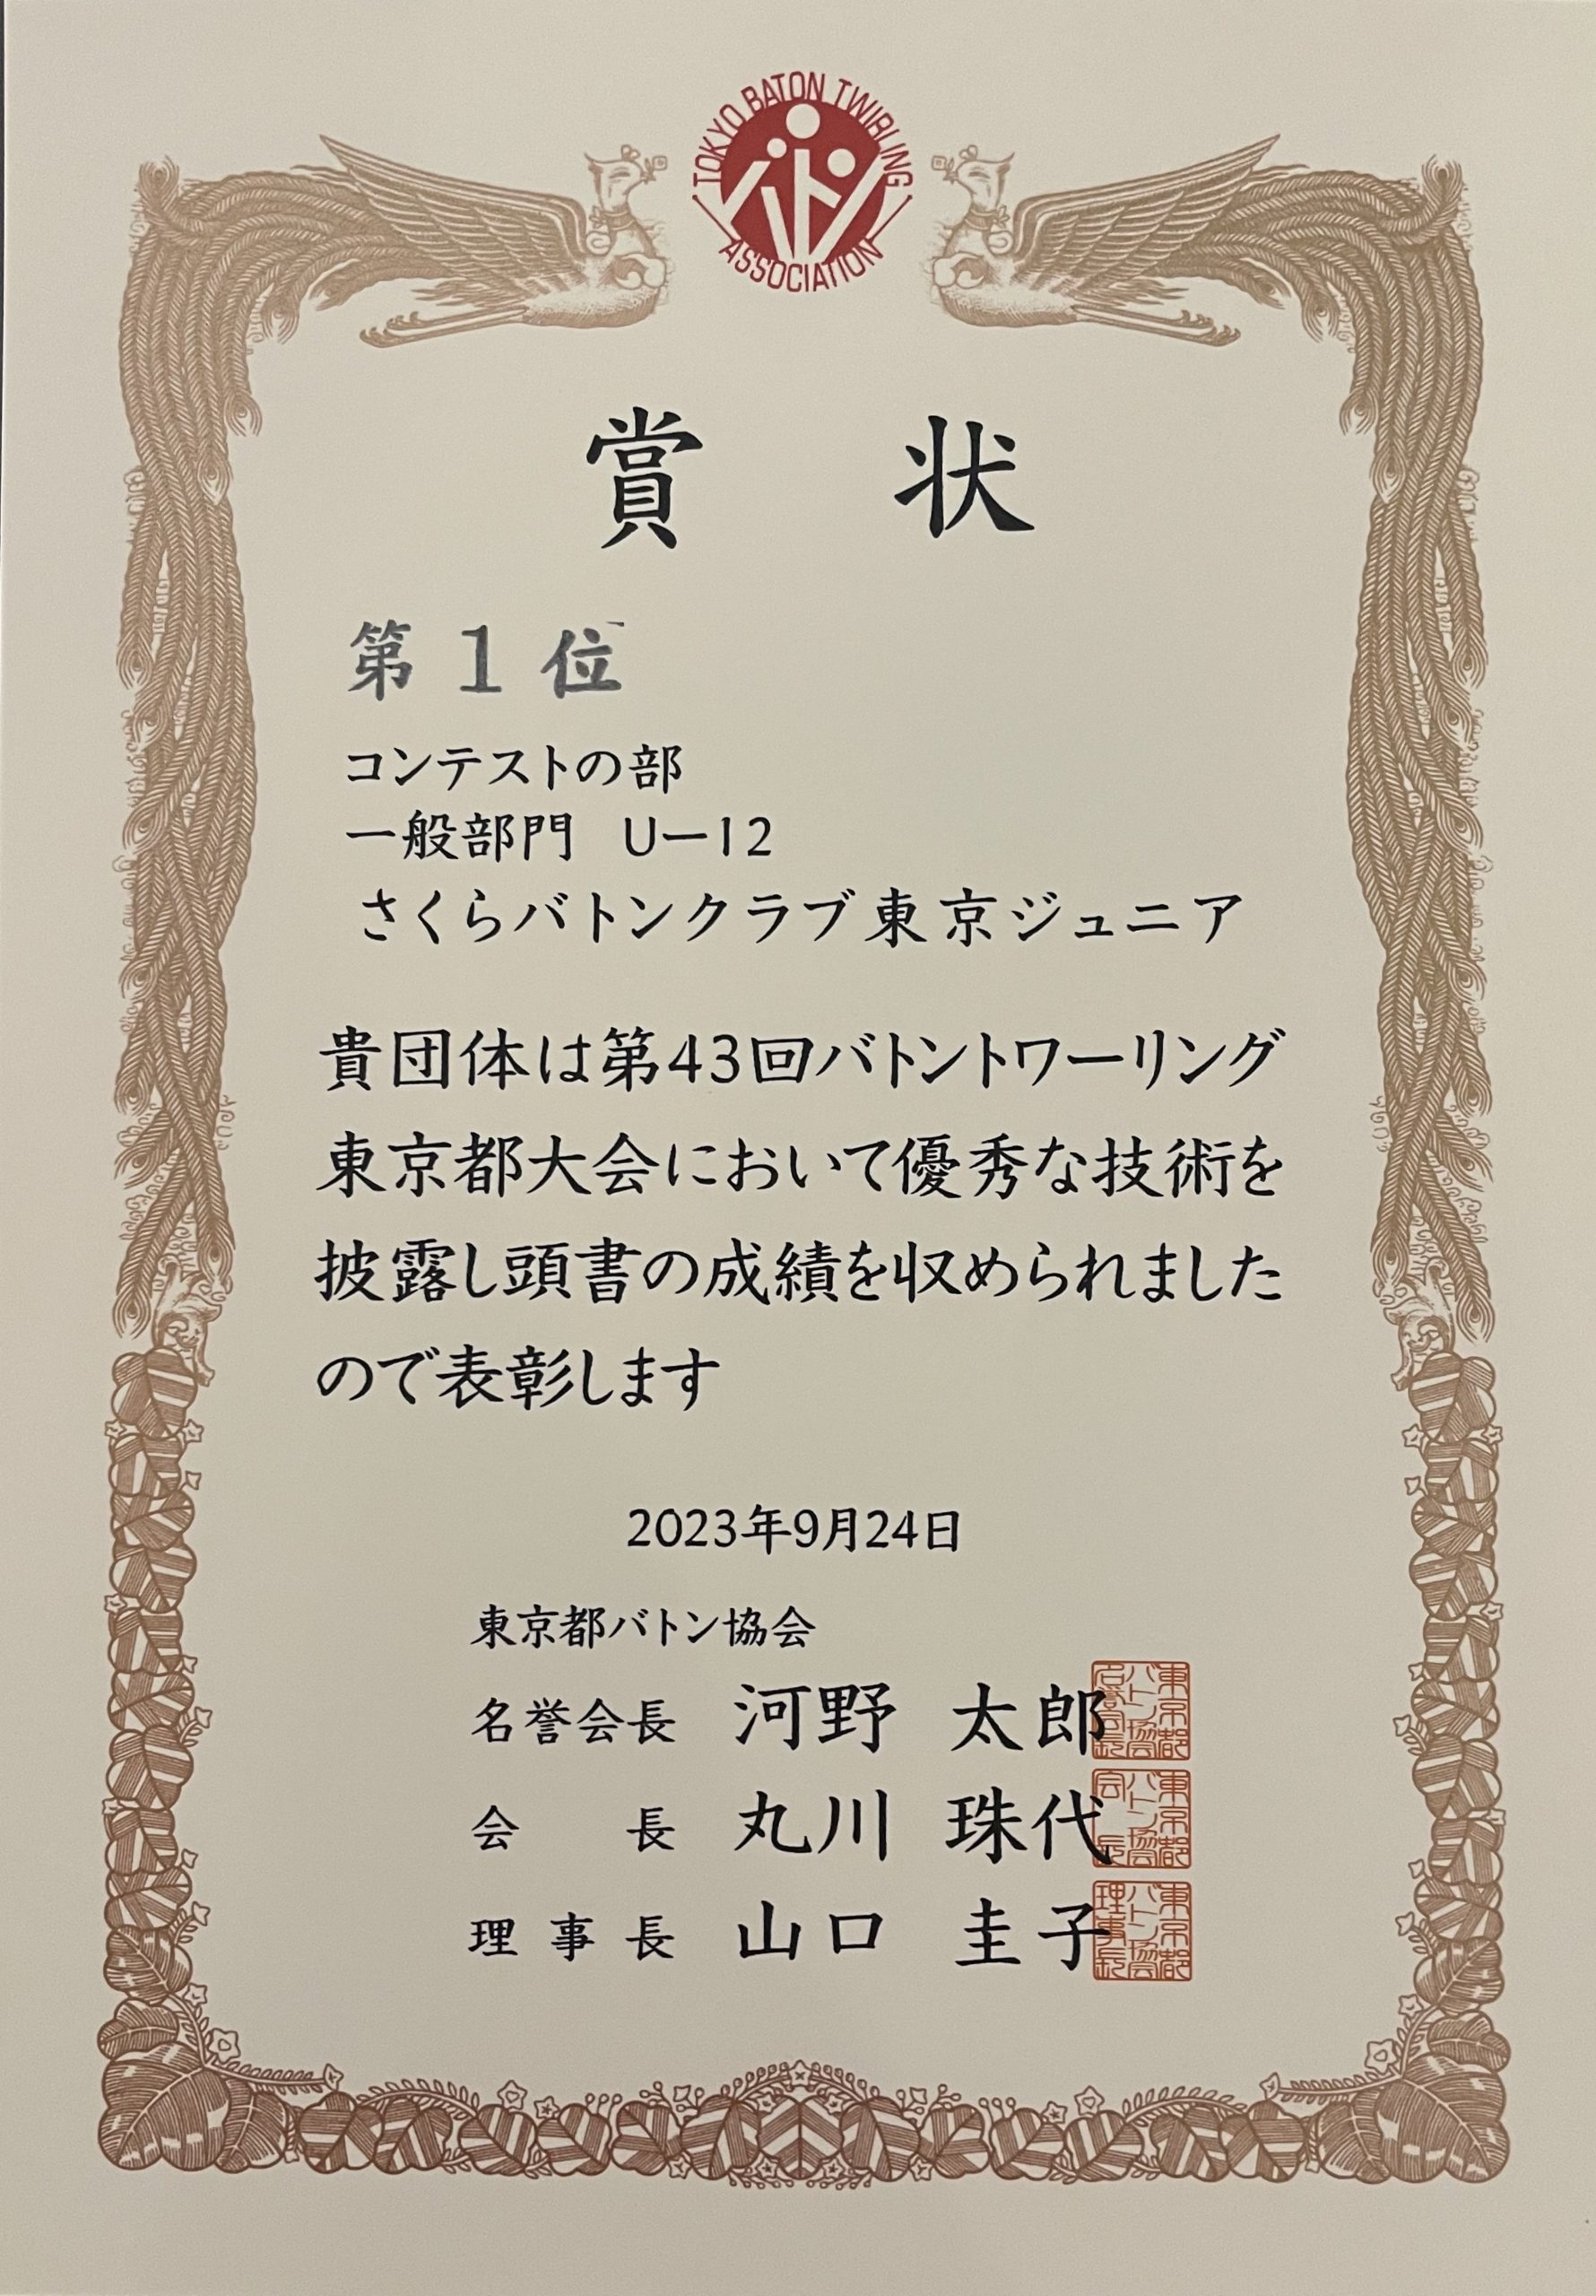 TOKYO BATON TWIRLING
バトン
ASSOCIATION
賞 状
第1位
コンテストの部
一般部門 U-12
さくらバトンクラブ東京ジュニア
貴団体は第43回バトントワーリング
東京都大会において優秀な技術を
披露し頭書の成績を収められました
ので表彰します
2023年9月24日
東京都バトン協会
名誉会長 河野 太郎
東京都バトン協会名誉会長
会 長 丸川 珠代
東京都バトン協会会長
理 事 長 山口 圭子
東京都バトン協会理事長